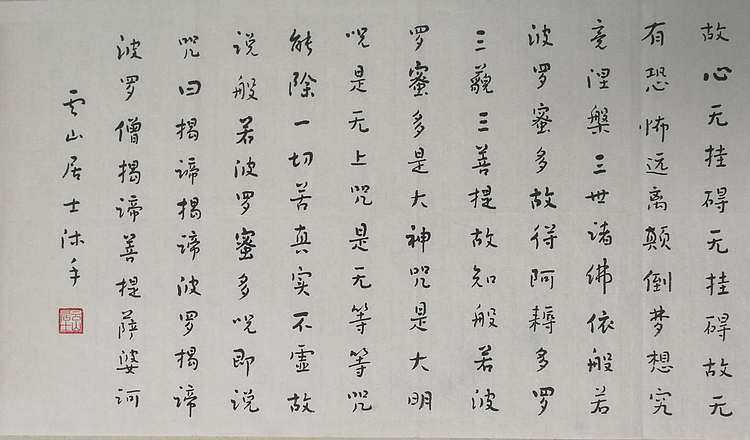 故心无挂碍无挂碍故无
有恐怖远离颠倒梦想究
竟涅槃三世诸佛依般若
波罗蜜多故得阿耨多罗
三藐三菩提故知般若波
罗蜜多是大神咒是大明
咒是无上咒是无等等咒
能除一切苦真实不虚故
说般若波罗蜜多咒即说
咒曰揭谛揭谛波罗揭谛
波罗僧揭谛菩提萨婆诃
云山居士沐手